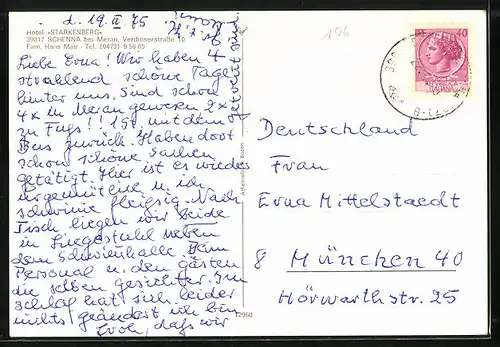 d. 19. II 75
106
Hotel «STARKENBERG»
39017 SCHENNA bei Meran, Verdinserstraße 10
Fam. Hans Mair - Tel. (0473) 9 56 65
Liebe Erna! Wir haben 4
strahlend schöne Tage
hinter uns. Sind schon
4x in Meran gewesen 2x
zu Fuß!! 1 Std. mit dem
Bus zurück. Haben dort
schon schöne Sachen
getätigt. Hier ist es wieder
urgemütlich u. ich
schwimme fleissig. Nach
Tisch liegen wir beide
im Liegestuhl neben
dem Schwimmhalle. Beim
Personal u. den Gästen
die selben Gesichter. Im
schlaf hat sich leider
nichts geändert. ich bin
froh, daß wir
12960
40
Deutschland
Frau
Erna Mittelstaedt
8 München 40
Hörwarthstr. 25